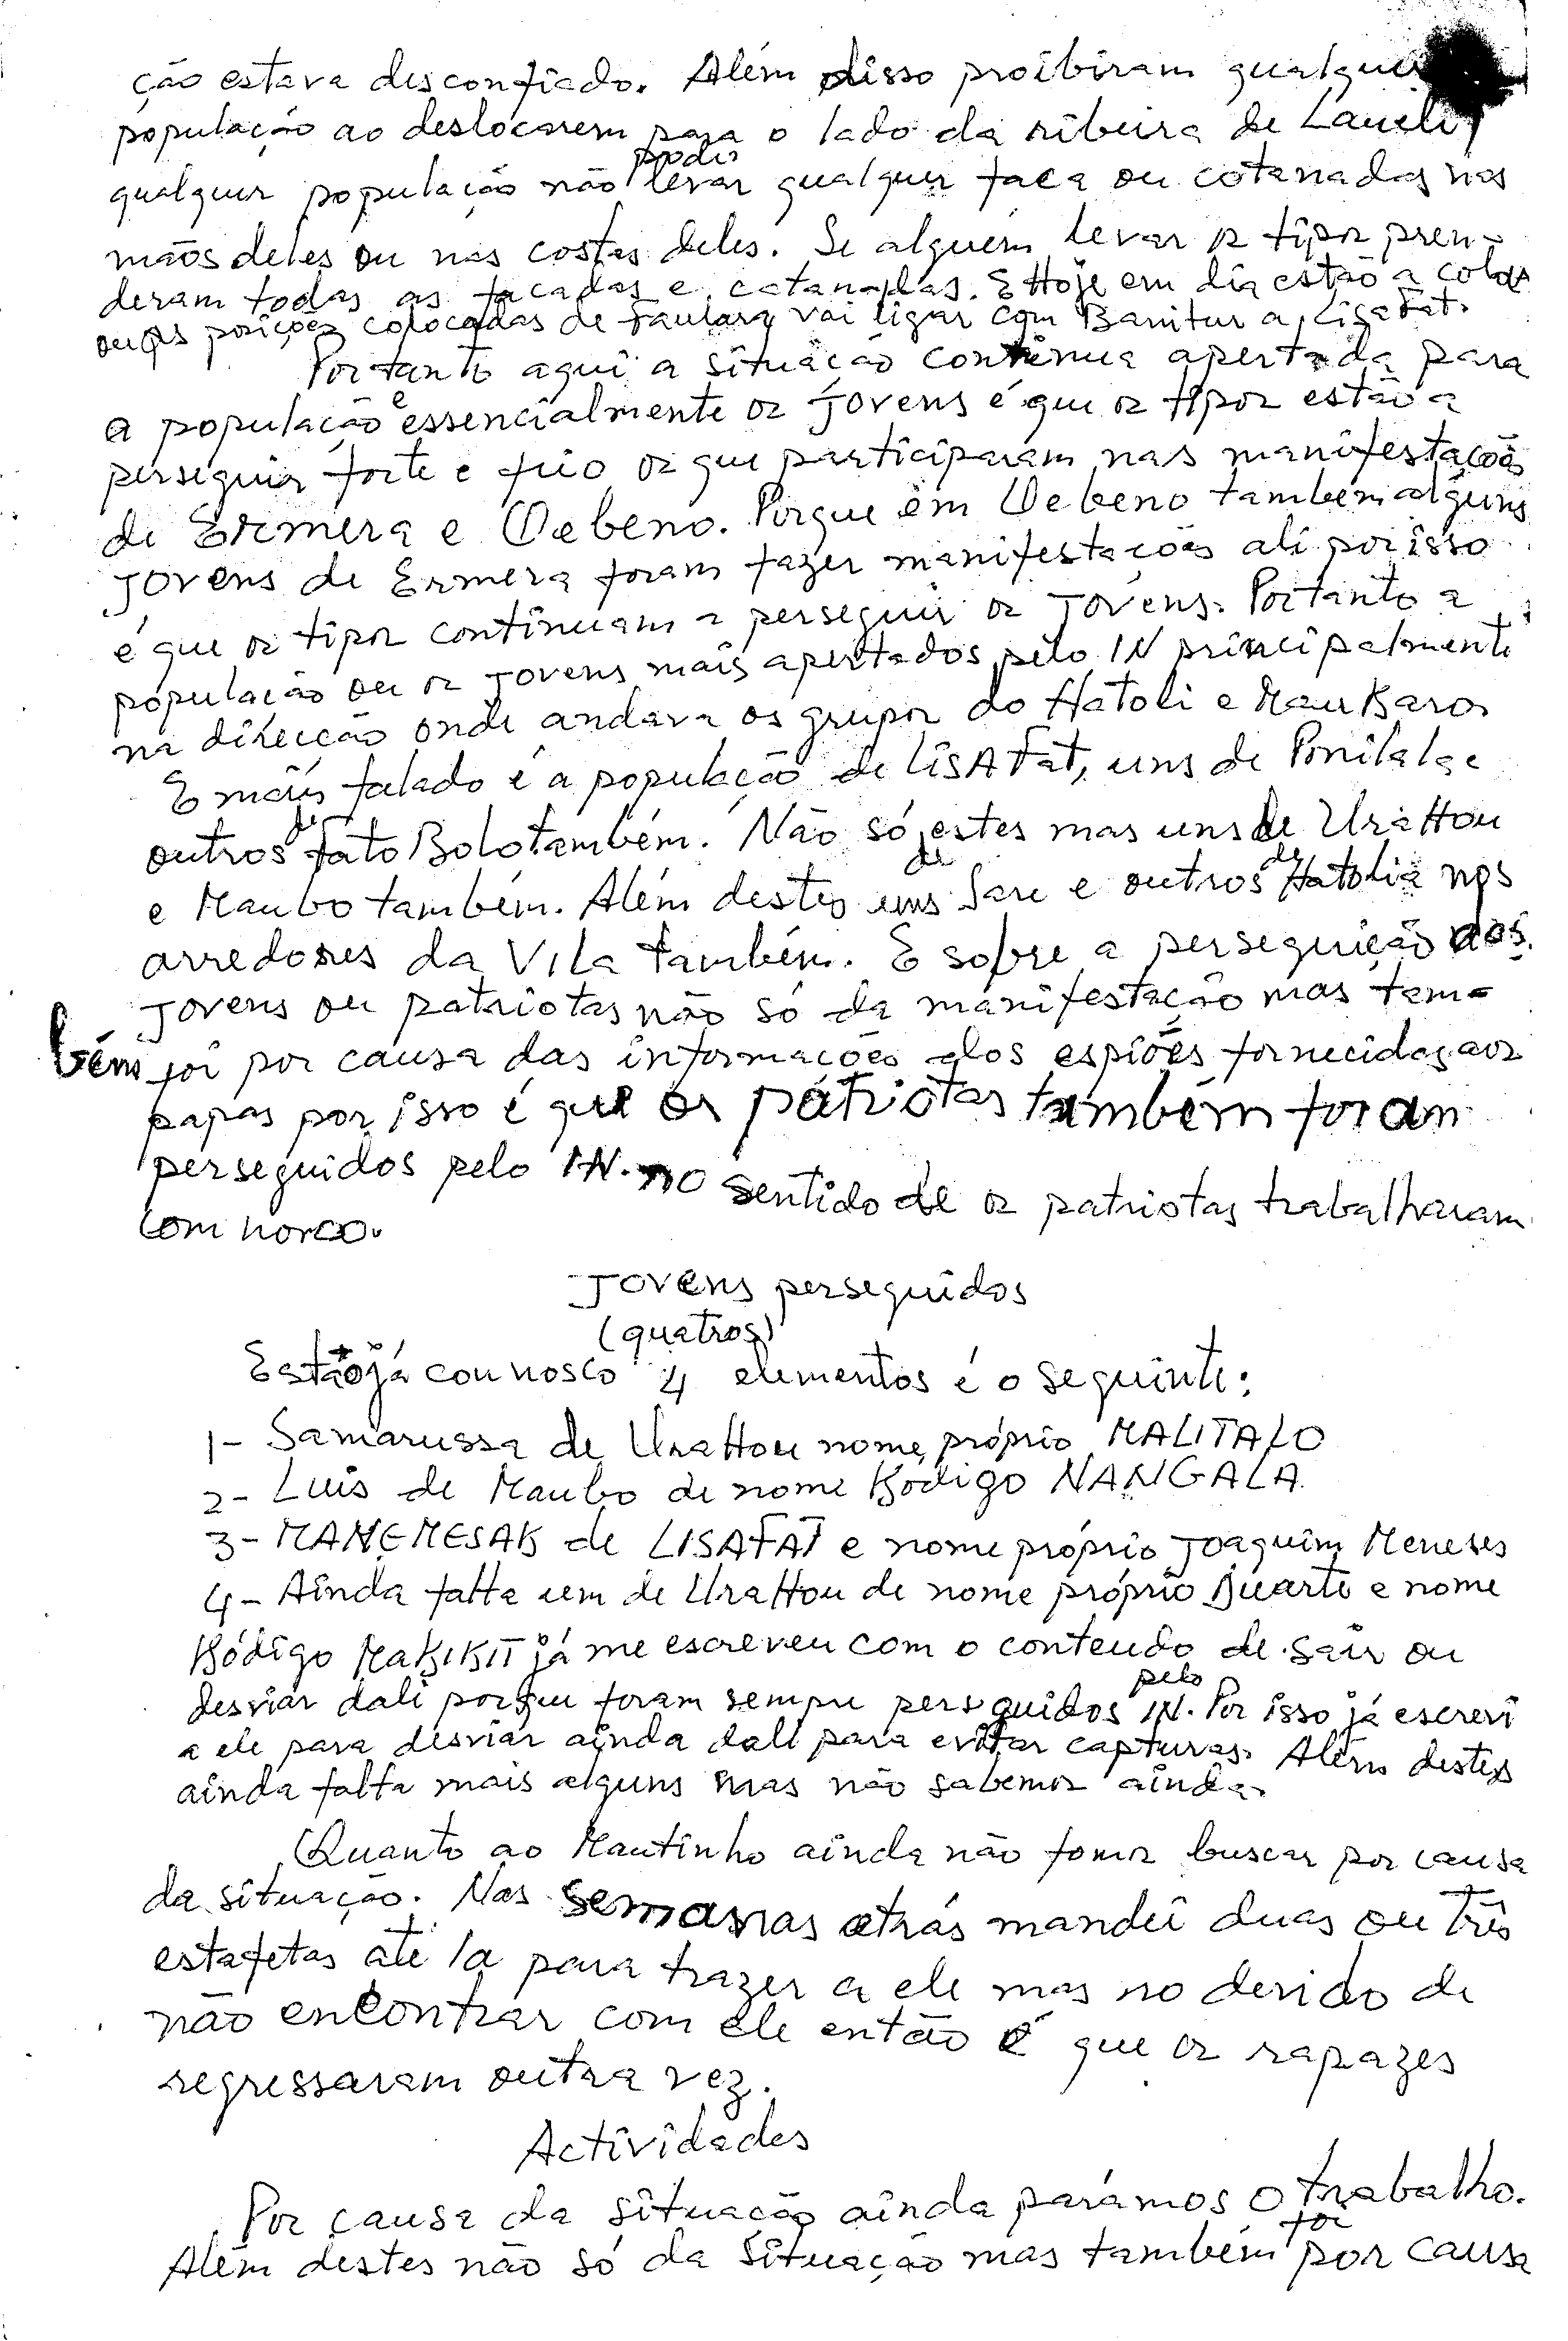 ção estava desconfiado. Além disso proibiram qualquer
população ao deslocarem para o lado da ribeira de Laueli,
qualquer população não podia levar qualquer faca ou catanadas nas
mãos deles ou nas costas deles. Se alguém levar os tipos pren-
deram todas as facadas e catanadas. E Hoje em dia estão a colocar
ou as posições colocadas de Faulara vai ligar com Banitur a Lisafat.
Portanto aqui a situação continua apertada para
a população e essencialmente os jovens é que os tipos estão a
perseguir forte e feio os que participaram nas manifestações
de Ermera e Oebeno. Porque em Oebeno também alguns
jovens de Ermera foram fazer manifestações ali por isso
é que os tipos continuam a perseguir os jovens. Portanto a
população ou os jovens mais apertados pelo IN principalmente
na direcção onde andava os grupos do Hatoli e MauKaros
E mais falado é a população de LISAFat, uns de Ponilala e
outros de fato Bolo também. Não só estes mas uns de UraHou
e Maubo também. Além destes uns de Sare e outros de Hatolia nos
arredores da Vila também. E sobre a perseguição dos
jovens ou patriotas não só da manifestação mas tam-
bém foi por causa das informações dos espiões fornecidas aos
papas por isso é que os patriotas também foram
perseguidos pelo IN. no sentido de os patriotas trabalharam
com nosco.
Jovens perseguidos
(quatros)
Estão já connosco 4 elementos é o seguinte:
1- Samarussa de UraHou nome próprio MALITALO
2- Luis de Maubo de nome Kódigo NANGALA
3- MANEMESAK de LISAFAT e nome próprio Joaquim Meneses
4- Ainda falta um de UraHou de nome próprio Duarte e nome
Kódigo MAKIKIT já me escreveu com o conteudo de sair ou
desviar dali porque foram sempre perseguidos pelo IN. Por isso já escrevi
a ele para desviar ainda dali para evitar capturas. Além destes
ainda falta mais alguns mas não sabemos ainda.
Quanto ao Mautinho ainda não fomos buscar por causa
da situação. Nas semanas atrás mandei duas ou três
estafetas até la para trazer a ele mas no devido de
não encontrar com ele então é que os rapazes
regressaram outra vez.
Actividades
Por causa da situação ainda parámos o trabalho.
Além destes não só da situação mas também foi por causa